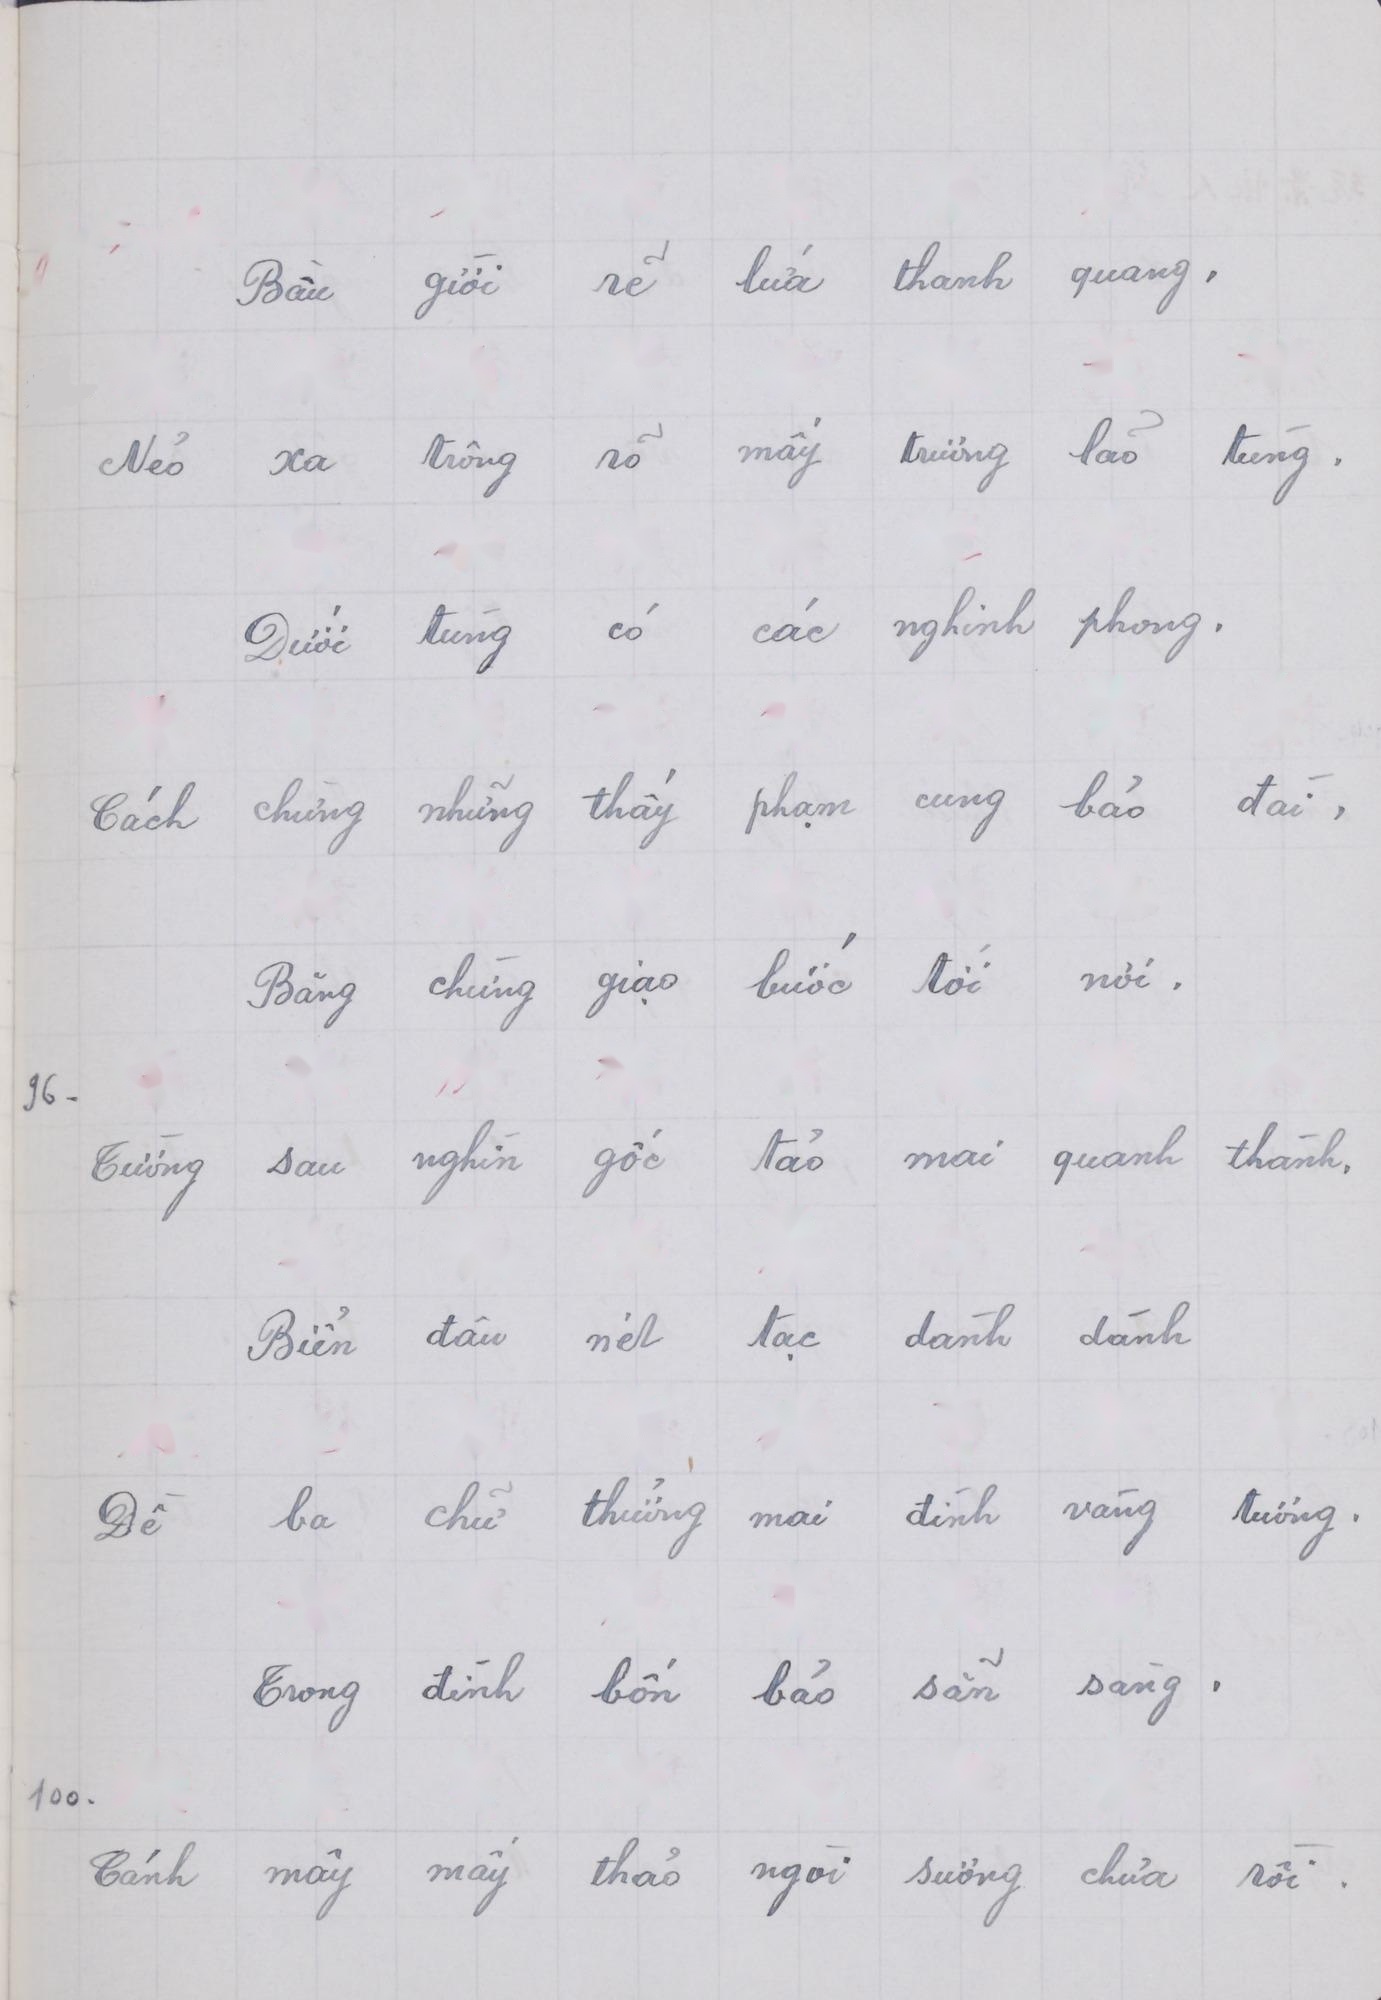 Bầu giời rẽ lứa thanh quang,
Nẻo xa trông rõ mấy trượng lão tùng.
Dưới tùng có các nghinh phong.
Cách chừng những thấy phạm cung bảo đài,
Băng chừng giạo bước tới nơi.
96-
Tường sau nghìn gốc tảo mai quanh thành.
Biển đâu nét tạc dành dành
Đề ba chữ thưởng mai đình vàng tường.
Trong đình bốn bảo sẵn sàng,
100.
Cánh mây mấy thảo ngòi sương chửa rồi.